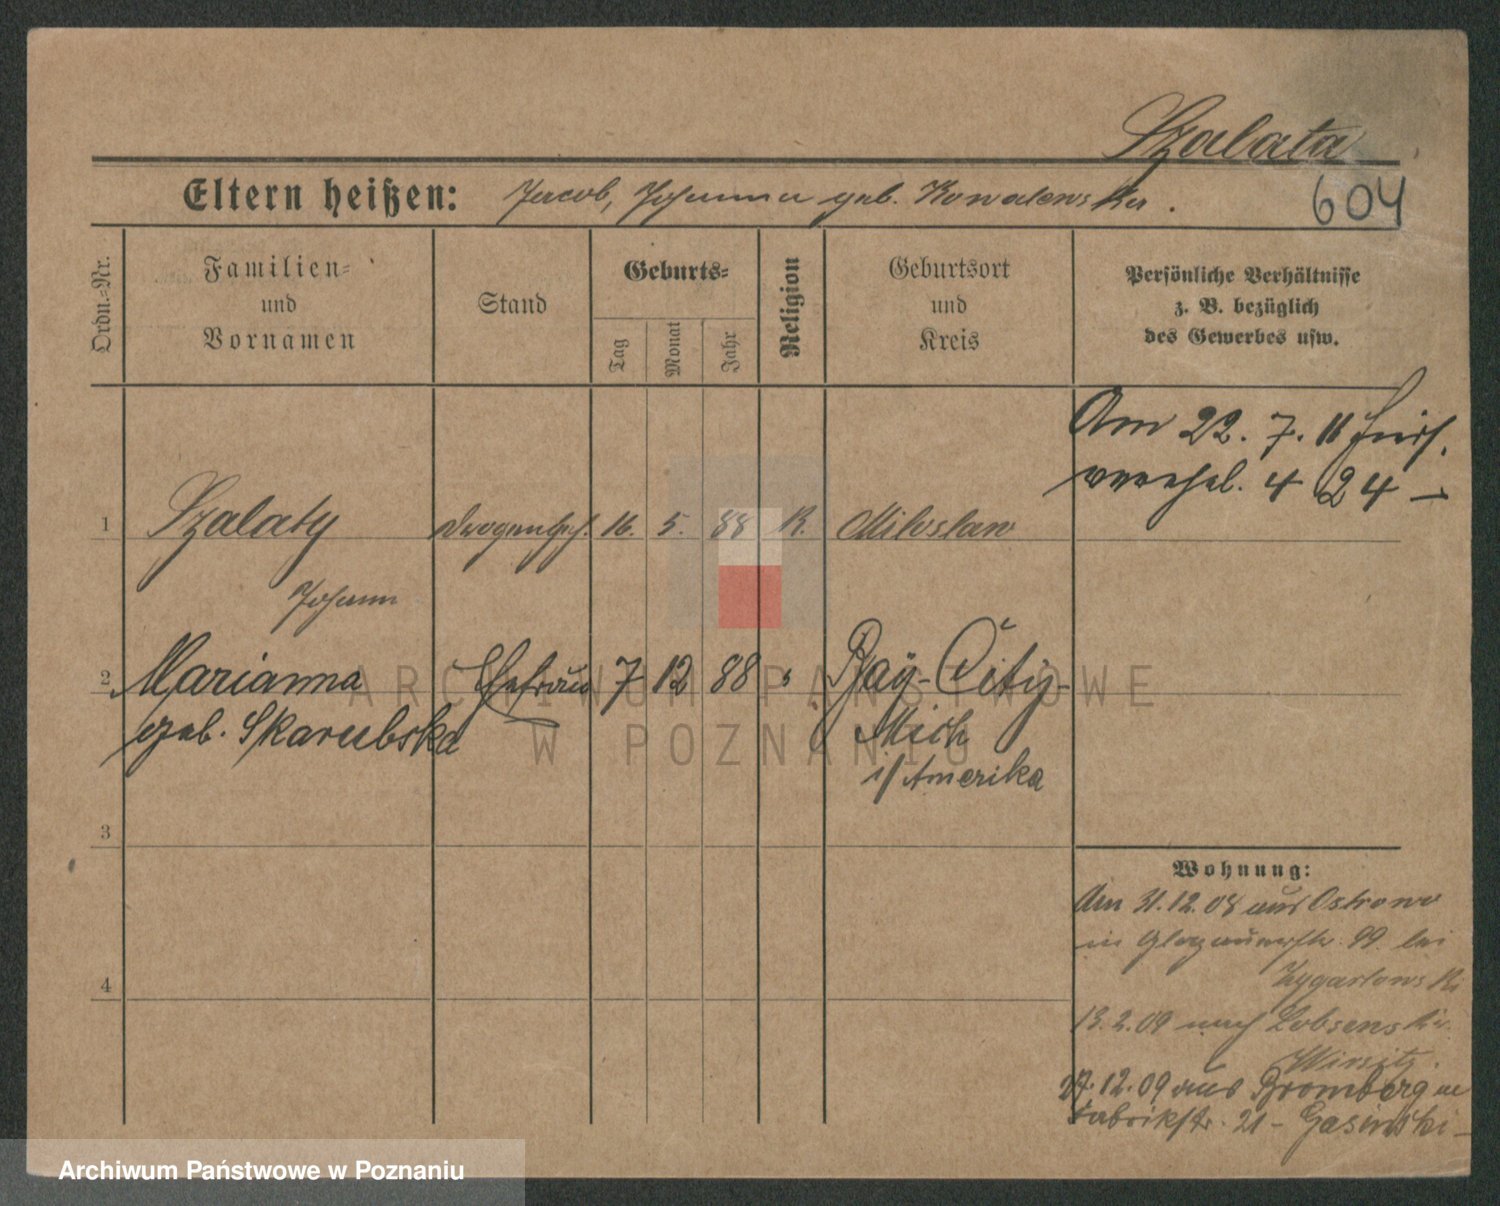 Szalata
Eltern heißen: Jacob, Johanna geb. Kowalewska.
604
Ordn.-Nr.
Familien-
und
Vornamen
Stand
Geburts-
Tag
Monat
Jahr
Religion
Geburtsort
und
Kreis
Persönliche Verhältnisse
z. B. bezüglich
des Gewerbes usw.
Am 22. 7. 11
4 24 –
1 Szalaty 16. 5. 88 K. Miloslaw
Johann
2 Marianna Ehefrau 7 12 88 " Bay-City-
geb. Skarubska Mich
i/Amerika
3
4
Wohnung:
Am 31.12.08 aus Ostrowo
in Glogauerstr. 99 bei
Zygartowski
13.2.09 nach Lobsens Kr.
Wirsitz.
27.12.09 aus Bromberg n
Fabrikstr. 21 – Gasinski –
ARCHIWUM PAŃSTWOWE
W POZNANIU
Archiwum Państwowe w Poznaniu